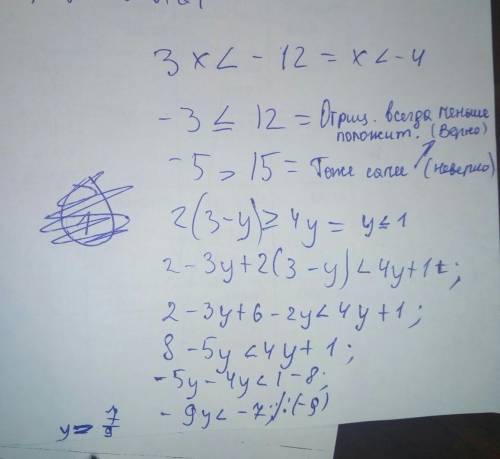 3x < - 12 = x < -4
-3 ≤ 12 = Отриц. всегда меньше положит. (Верно)
-5 > 15 = Тоже самое (неверно)
2(3-y) ≥ 4y = y ≤ 1
2 - 3y + 2(3 - y) < 4y + 1;
2 - 3y + 6 - 2y < 4y + 1;
8 - 5y < 4y + 1;
-5y - 4y < 1 - 8;
- 9y < -7; /:(-9)
y > 7/9